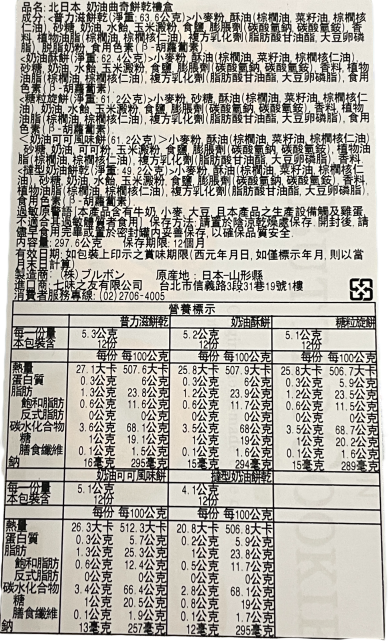 品名:北日本 奶油曲奇餅乾禮盒
成分:<普力滋餅乾(淨重:63.6公克)>小麥粉,酥油(棕櫚油,菜籽油,棕櫚核仁油),砂糖,奶油,水飴,玉米澱粉,食鹽,膨脹劑(碳酸氫鈉,碳酸氫銨),香料,植物油脂(棕櫚油,棕櫚核仁油),複方乳化劑(脂肪酸甘油酯,大豆卵磷脂),脫脂奶粉,食用色素(β-胡蘿蔔素).
<奶油酥餅(淨重:62.4公克)>小麥粉,酥油(棕櫚油,菜籽油,棕櫚核仁油),砂糖,奶油,水飴,玉米澱粉,食鹽,膨脹劑(碳酸氫鈉,碳酸氫銨),香料,植物油脂(棕櫚油,棕櫚核仁油),複方乳化劑(脂肪酸甘油酯,大豆卵磷脂),食用色素(β-胡蘿蔔素).
<糖粒旋餅(淨重:61.2公克)>小麥粉,砂糖,酥油(棕櫚油,菜籽油,棕櫚核仁油),奶油,水飴,玉米澱粉,食鹽,膨脹劑(碳酸氫鈉,碳酸氫銨),香料,植物油脂(棕櫚油,棕櫚核仁油),複方乳化劑(脂肪酸甘油酯,大豆卵磷脂),食用色素(β-胡蘿蔔素).
<奶油可可風味餅(61.2公克)>小麥粉,酥油(棕櫚油,菜籽油,棕櫚核仁油),砂糖,奶油,可可粉,玉米澱粉,食鹽,膨脹劑(碳酸氫鈉,碳酸氫銨),植物油脂(棕櫚油,棕櫚核仁油),複方乳化劑(脂肪酸甘油酯,大豆卵磷脂),香料.
<撻型奶油餅乾(淨重:49.2公克)>小麥粉,酥油(棕櫚油,菜籽油,棕櫚核仁油),砂糖,奶油,水飴,玉米澱粉,食鹽,膨脹劑(碳酸氫鈉,碳酸氫銨),香料,植物油脂(棕櫚油,棕櫚核仁油),複方乳化劑(脂肪酸甘油酯,大豆卵磷脂),食用色素(β-胡蘿蔔素).
過敏原警語:本產品含有牛奶,小麥,大豆,且本產品之生產設備觸及雞蛋,不適合其過敏體質者食用.保存方式:請置於陰涼乾燥處保存.開封後,請儘早食用完畢或置於密封罐內妥善保存,以確保品質安全.
內容量:297.6公克 保存期限:12個月
有效日期:如包裝上印示之賞味期限(西元年月日,如僅標示年月,則以當月末日計算)
製造商:(株)ブルボン 原產地:日本-山形縣
進口商:七味之友有限公司 台北市信義路3段31巷19號1樓
消費者服務專線:(02)2706-4005
營養標示
普力滋餅乾 奶油酥餅 糖粒旋餅
每一份量 5.3公克 5.2公克 5.1公克
本包裝含 12份 12份 12份
每份 每100公克 每份 每100公克 每份 每100公克
熱量 27.1大卡 507.6大卡 25.8大卡 507.9大卡 25.8大卡 506.7大卡
蛋白質 0.3公克 6公克 0.3公克 6公克 0.3公克 5.9公克
脂肪 1.3公克 23.8公克 1.2公克 23.9公克 1.2公克 23.5公克
飽和脂肪 0.6公克 11.6公克 0.6公克 11.7公克 0.6公克 11.5公克
反式脂肪 0公克 0公克 0公克 0公克 0公克 0公克
碳水化合物 3.6公克 68.1公克 3.5公克 68公克 3.5公克 68.7公克
糖 1公克 19.1公克 1公克 19公克 1公克 20.2公克
膳食纖維 0.1公克 1.5公克 0.1公克 1.5公克 0.1公克 1.6公克
鈉 16毫克 295毫克 15毫克 294毫克 15毫克 289毫克
奶油可可風味餅 撻型奶油餅乾
每一份量 5.1公克 4.1公克
本包裝含 12份 12份
每份 每100公克 每份 每100公克
熱量 26.3大卡 512.3大卡 20.8大卡 506.8大卡
蛋白質 0.3公克 5.7公克 0.2公克 5.9公克
脂肪 1.3公克 25.3公克 1公克 23.8公克
飽和脂肪 0.6公克 12.4公克 0.5公克 11.7公克
反式脂肪 0公克 0公克 0公克 0公克
碳水化合物 3.4公克 66.4公克 2.8公克 68.1公克
糖 1公克 20.5公克 0.8公克 19公克
膳食纖維 0.1公克 1.9公克 0.1公克 1.7公克
鈉 13毫克 257毫克 12毫克 295毫克